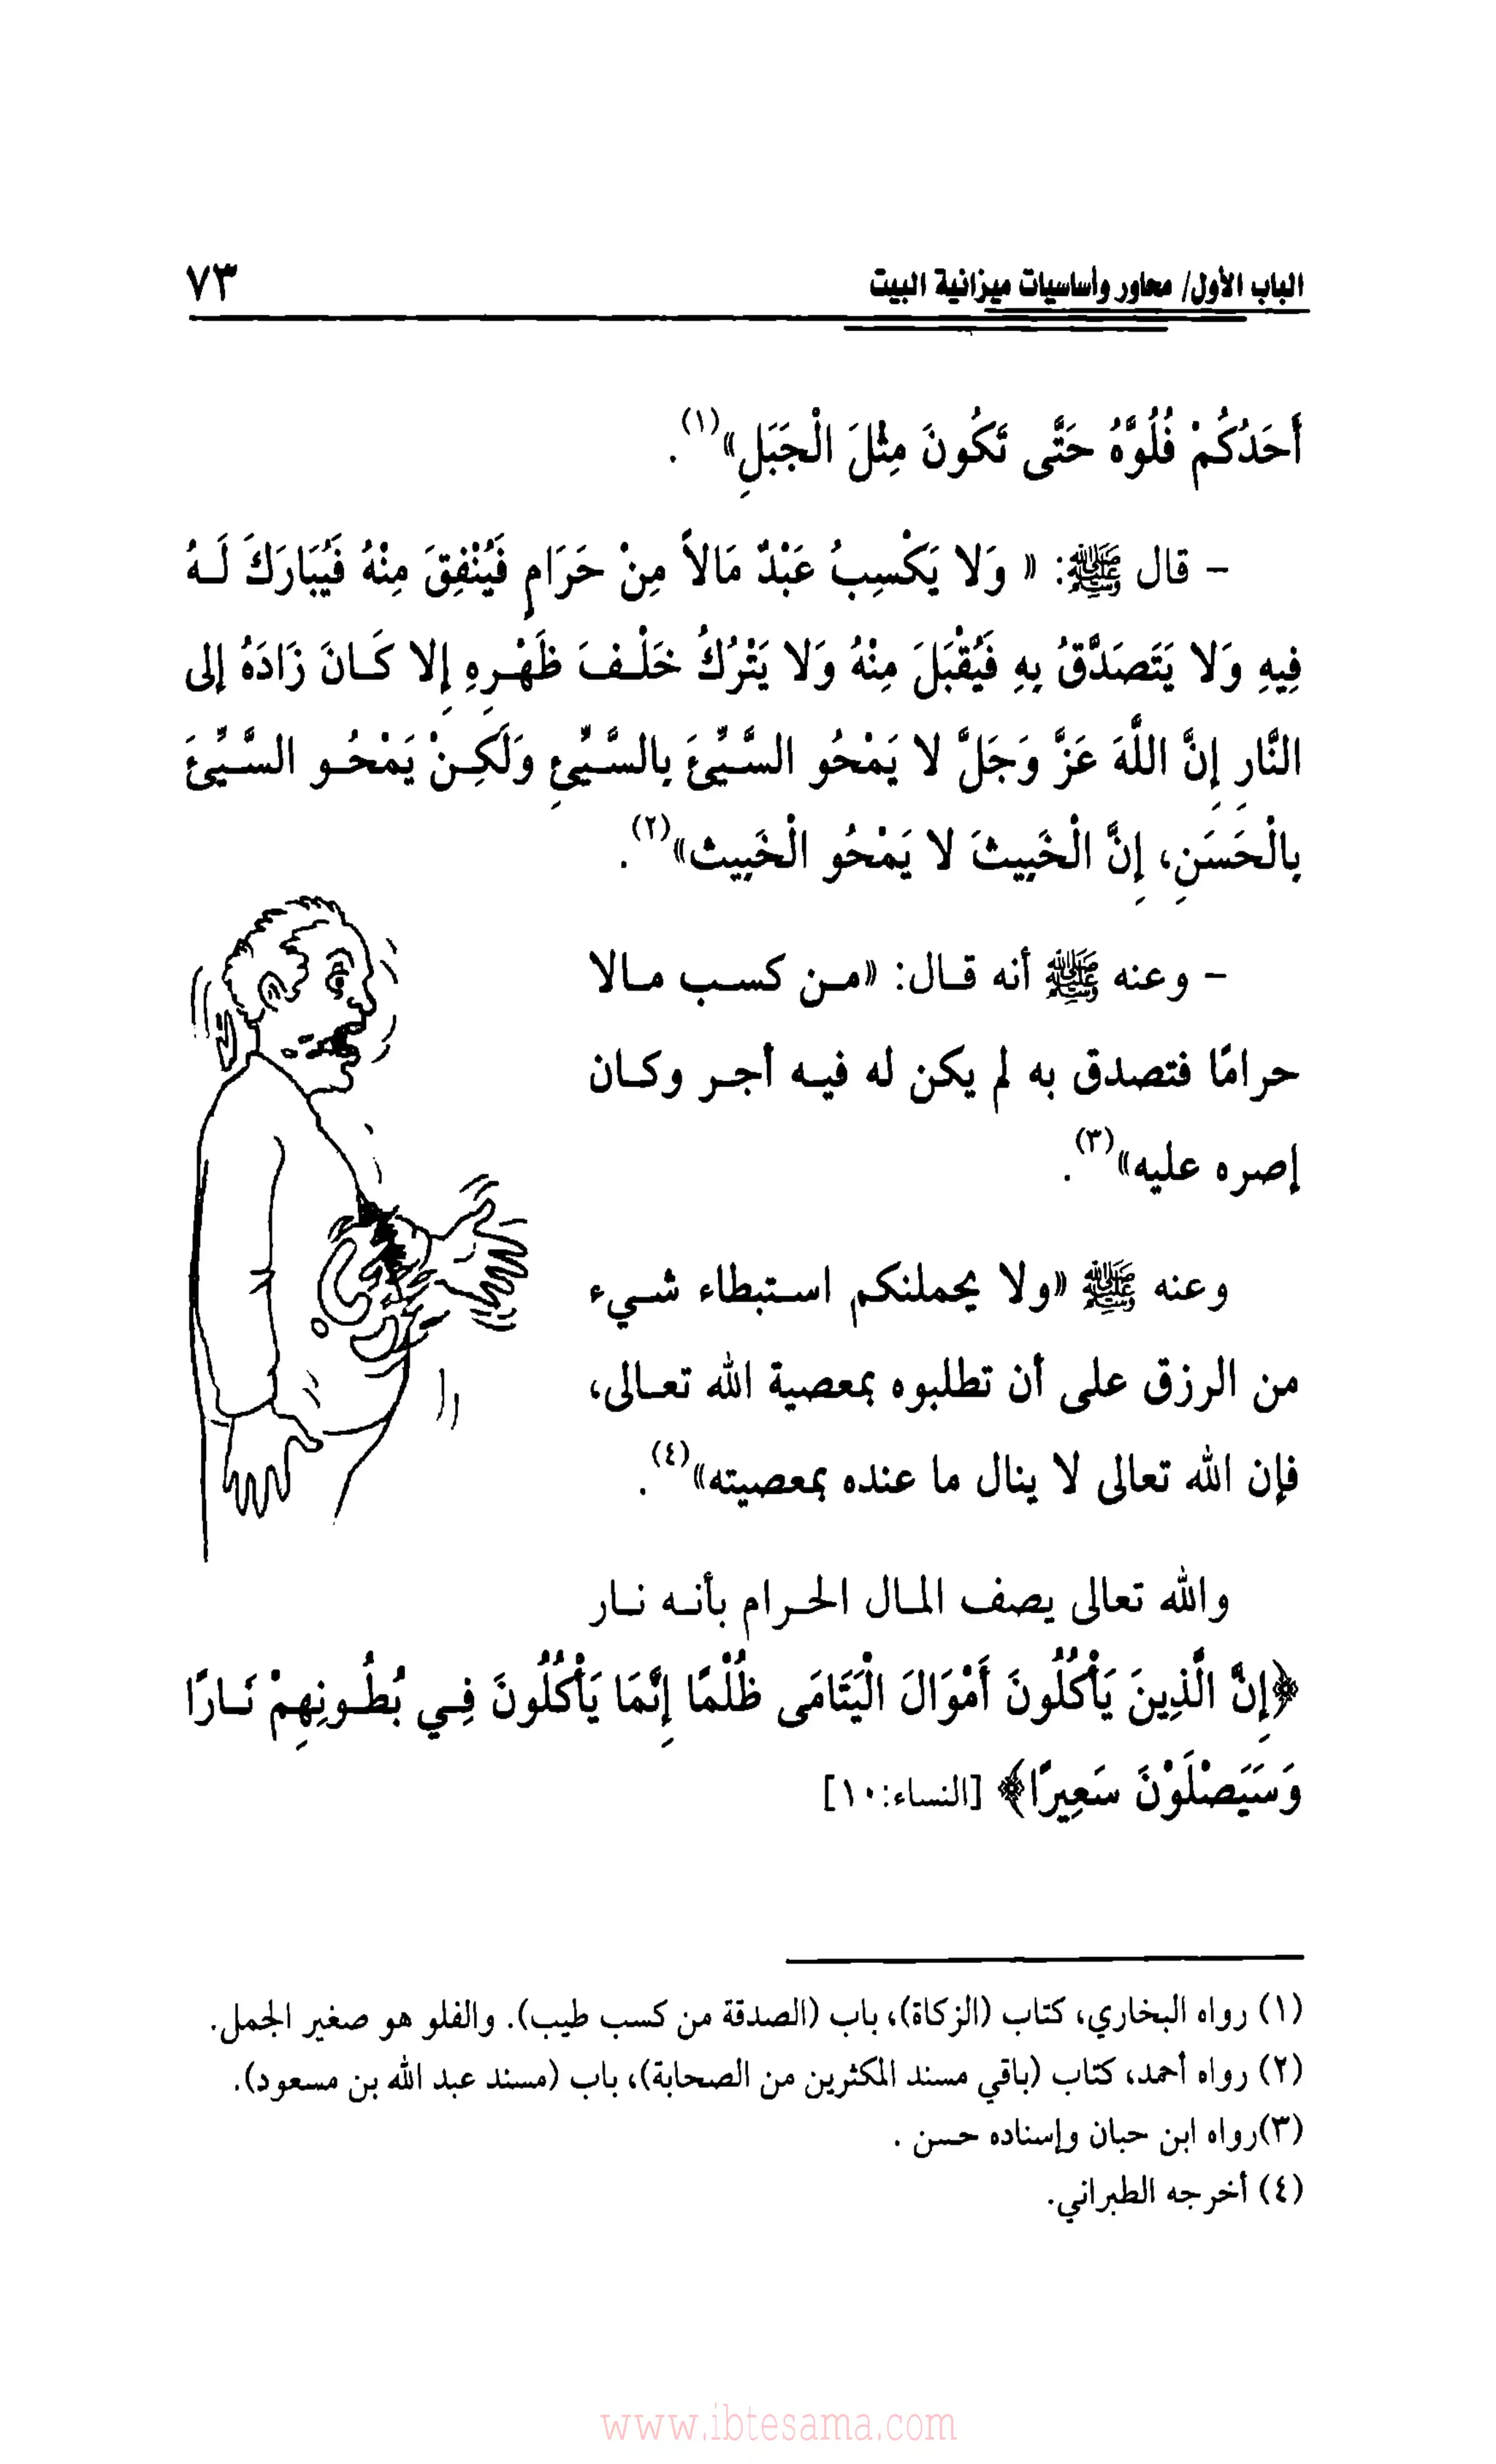 الباب الأول/ محاور وأساسيات ميزانية البيت ٧٣
أَحَدُكُمْ فُلُوَّهُ حَتَّى تَكُونَ مِثْلَ الْجَبَلِ»(١).
- قال ﷺ: « وَلا يَكْسِبُ عَبْدٌ مَالاً مِنْ حَرَامٍ فَيُنْفِقَ مِنْهُ فَيُبَارَكَ لَهُ
فِيهِ وَلا يَتَصَدَّقُ بِهِ فَيُقْبَلَ مِنْهُ وَلا يَتْرُكُ خَلْفَ ظَهْرِهِ إِلا كَانَ زَادَهُ إلى
النَّارِ إِنَّ اللَّهَ عَزَّ وَجَلَّ لا يَمْحُو السَّيِّئَ بِالسَّيِّئِ وَلَكِنْ يَمْحُو السَّيِّئَ
بِالْحَسَنِ، إِنَّ الْخَبِيثَ لا يَمْحُو الْخَبِيث»(٢).
- وعنه ﷺ أنه قال: «من كسب مالا
حرامًا فتصدق به لم يكن له فيه أجر وكان
إصره عليه»(٣).
وعنه ﷺ «ولا يحملنكم استبطاء شيء
من الرزق على أن تطلبوه بمعصية الله تعالى،
فإن الله تعالى لا ينال ما عنده بمعصيته»(٤).
والله تعالى يصف المال الحرام بأنه نار
﴿إِنَّ الَّذِينَ يَأْكُلُونَ أَمْوَالَ الْيَتَامَى ظُلْمًا إِنَّمَا يَأْكُلُونَ فِي بُطُونِهِمْ نَارًا
وَسَيَصْلَوْنَ سَعِيرًا﴾ [النساء:١٠]
(١) رواه البخاري، كتاب (الزكاة)، باب (الصدقة من كسب طيب). والفلو هو صغير الجمل.
(٢) رواه أحمد، كتاب (باقي مسند المكثرين من الصحابة)، باب (مسند عبد الله بن مسعود).
(٣)رواه ابن حبان وإسناده حسن .
(٤) أخرجه الطبراني.
www.ibtesama.com